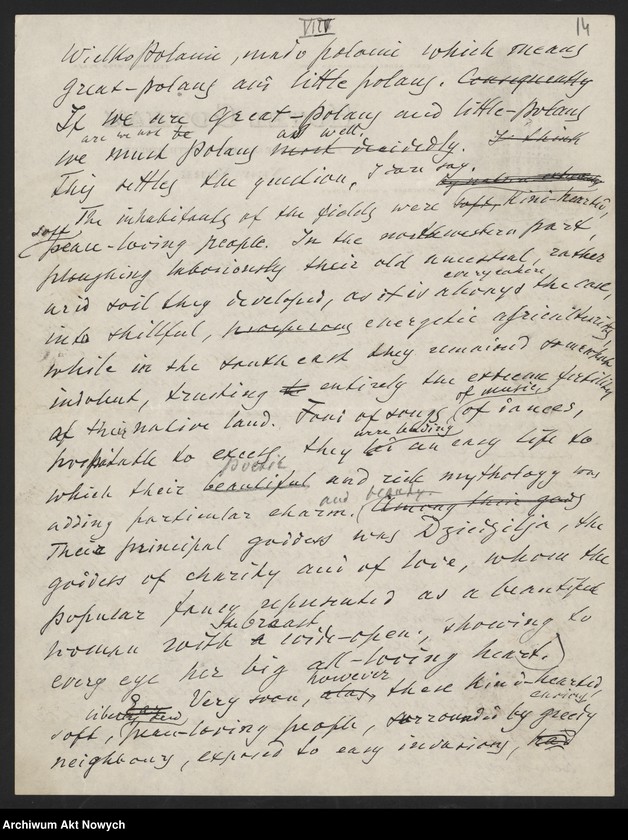 VIII
14
Wielkopolanie, małopolanie which means
great-polans and little polans. Consequently
If we are Great-polans and little-polans
are we not be as well,
we must polans most decidedly. I think
This settles the question, I dare say.
The inhabitants of the fields were soft, kind-hearted,
soft
peace-loving people. In the northwestern part,
ploughing laboriously their old ancestral, rather
everywhere,
arid soil they developed, as it is always the case,
into skillful, prosperous energetic agriculturists,
while in the south east they remained somewhat
indolent, trusting to entirely the extreme fertility
of music,
of their native land. Fond of songs, of dances,
were leading
hospitable to excess, they led an easy life to
poetic
which their beautiful and rich mythology was
and beauty.
adding particular charm. (Among their gods
Their principal goddess was Dzidzilja, the
goddess of charity and of love, whom the
popular fancy represented as a beautiful
breast
woman with a wide-open, showing to
every eye her big all-loving heart.)
however
Very soon, alas, these kind-hearted,
envious
soft, peace-loving people, surrounded by greedy
neighbours, exposed to easy invasions, had